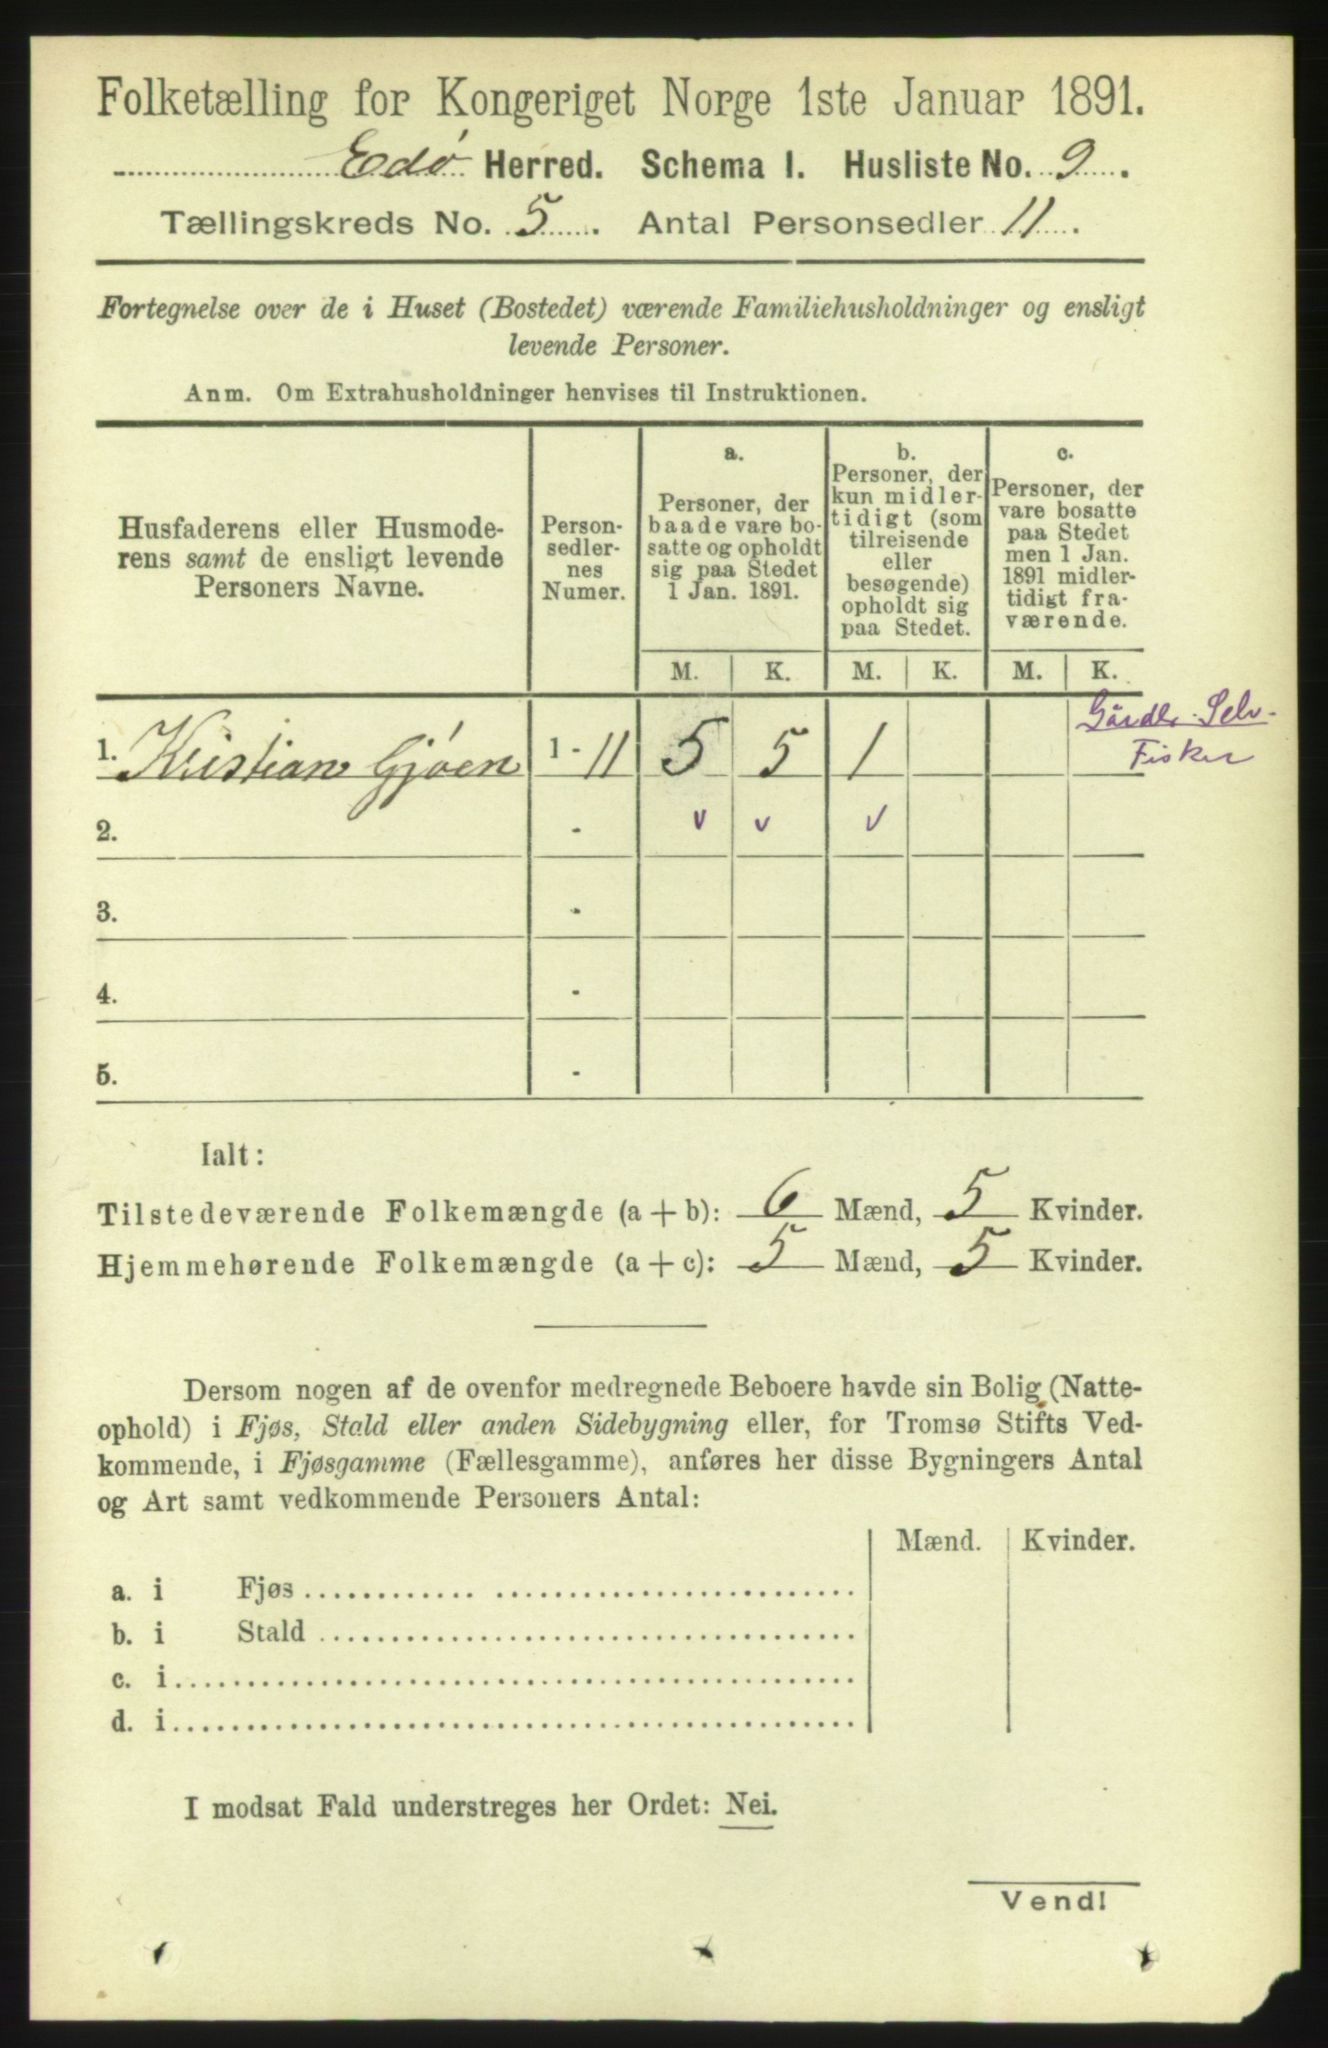 Folketælling for Kongeriget Norge 1ste Januar 1891.
Edø Herred. Schema I. Husliste No. 9.
Tællingskreds No. 5. Antal Personsedler 11.
Fortegnelse over de i Huset (Bostedet) værende Familiehusholdninger og ensligt
levende Personer.
Anm. Om Extrahusholdninger henvises til Instruktionen.
Husfaderens eller Husmode-
rens samt de ensligt levende
Personers Navne.
Person-
sedler-
nes
Numer.
a.
Personer, der
baade vare bo-
satte og opholdt
sig paa Stedet
1 Jan. 1891.
b.
Personer, der
kun midler-
tidigt (som
tilreisende
eller
besøgende)
opholdt sig
paa Stedet.
c.
Personer, der
vare bosatte
paa Stedet
men 1 Jan.
1891 midler-
tidigt fra-
værende.
M. K. M. K. M. K.
Gårdbr. Selv.
Fisker
1. Kristian Gjøen 1 - 11 5 5 1
2. - v v v
3. -
4. -
5. -
Ialt:
Tilstedeværende Folkemængde (a + b): 6 Mænd, 5 Kvinder.
Hjemmehørende Folkemængde (a + c): 5 Mænd, 5 Kvinder.
Dersom nogen af de ovenfor medregnede Beboere havde sin Bolig (Natte-
ophold) i Fjøs, Stald eller anden Sidebygning eller, for Tromsø Stifts Ved-
kommende, i Fjøsgamme (Fællesgamme), anføres her disse Bygningers Antal
og Art samt vedkommende Personers Antal:
Mænd. Kvinder.
a. i Fjøs
b. i Stald
c. i
d. i
I modsat Fald understreges her Ordet: Nei.
Vend!